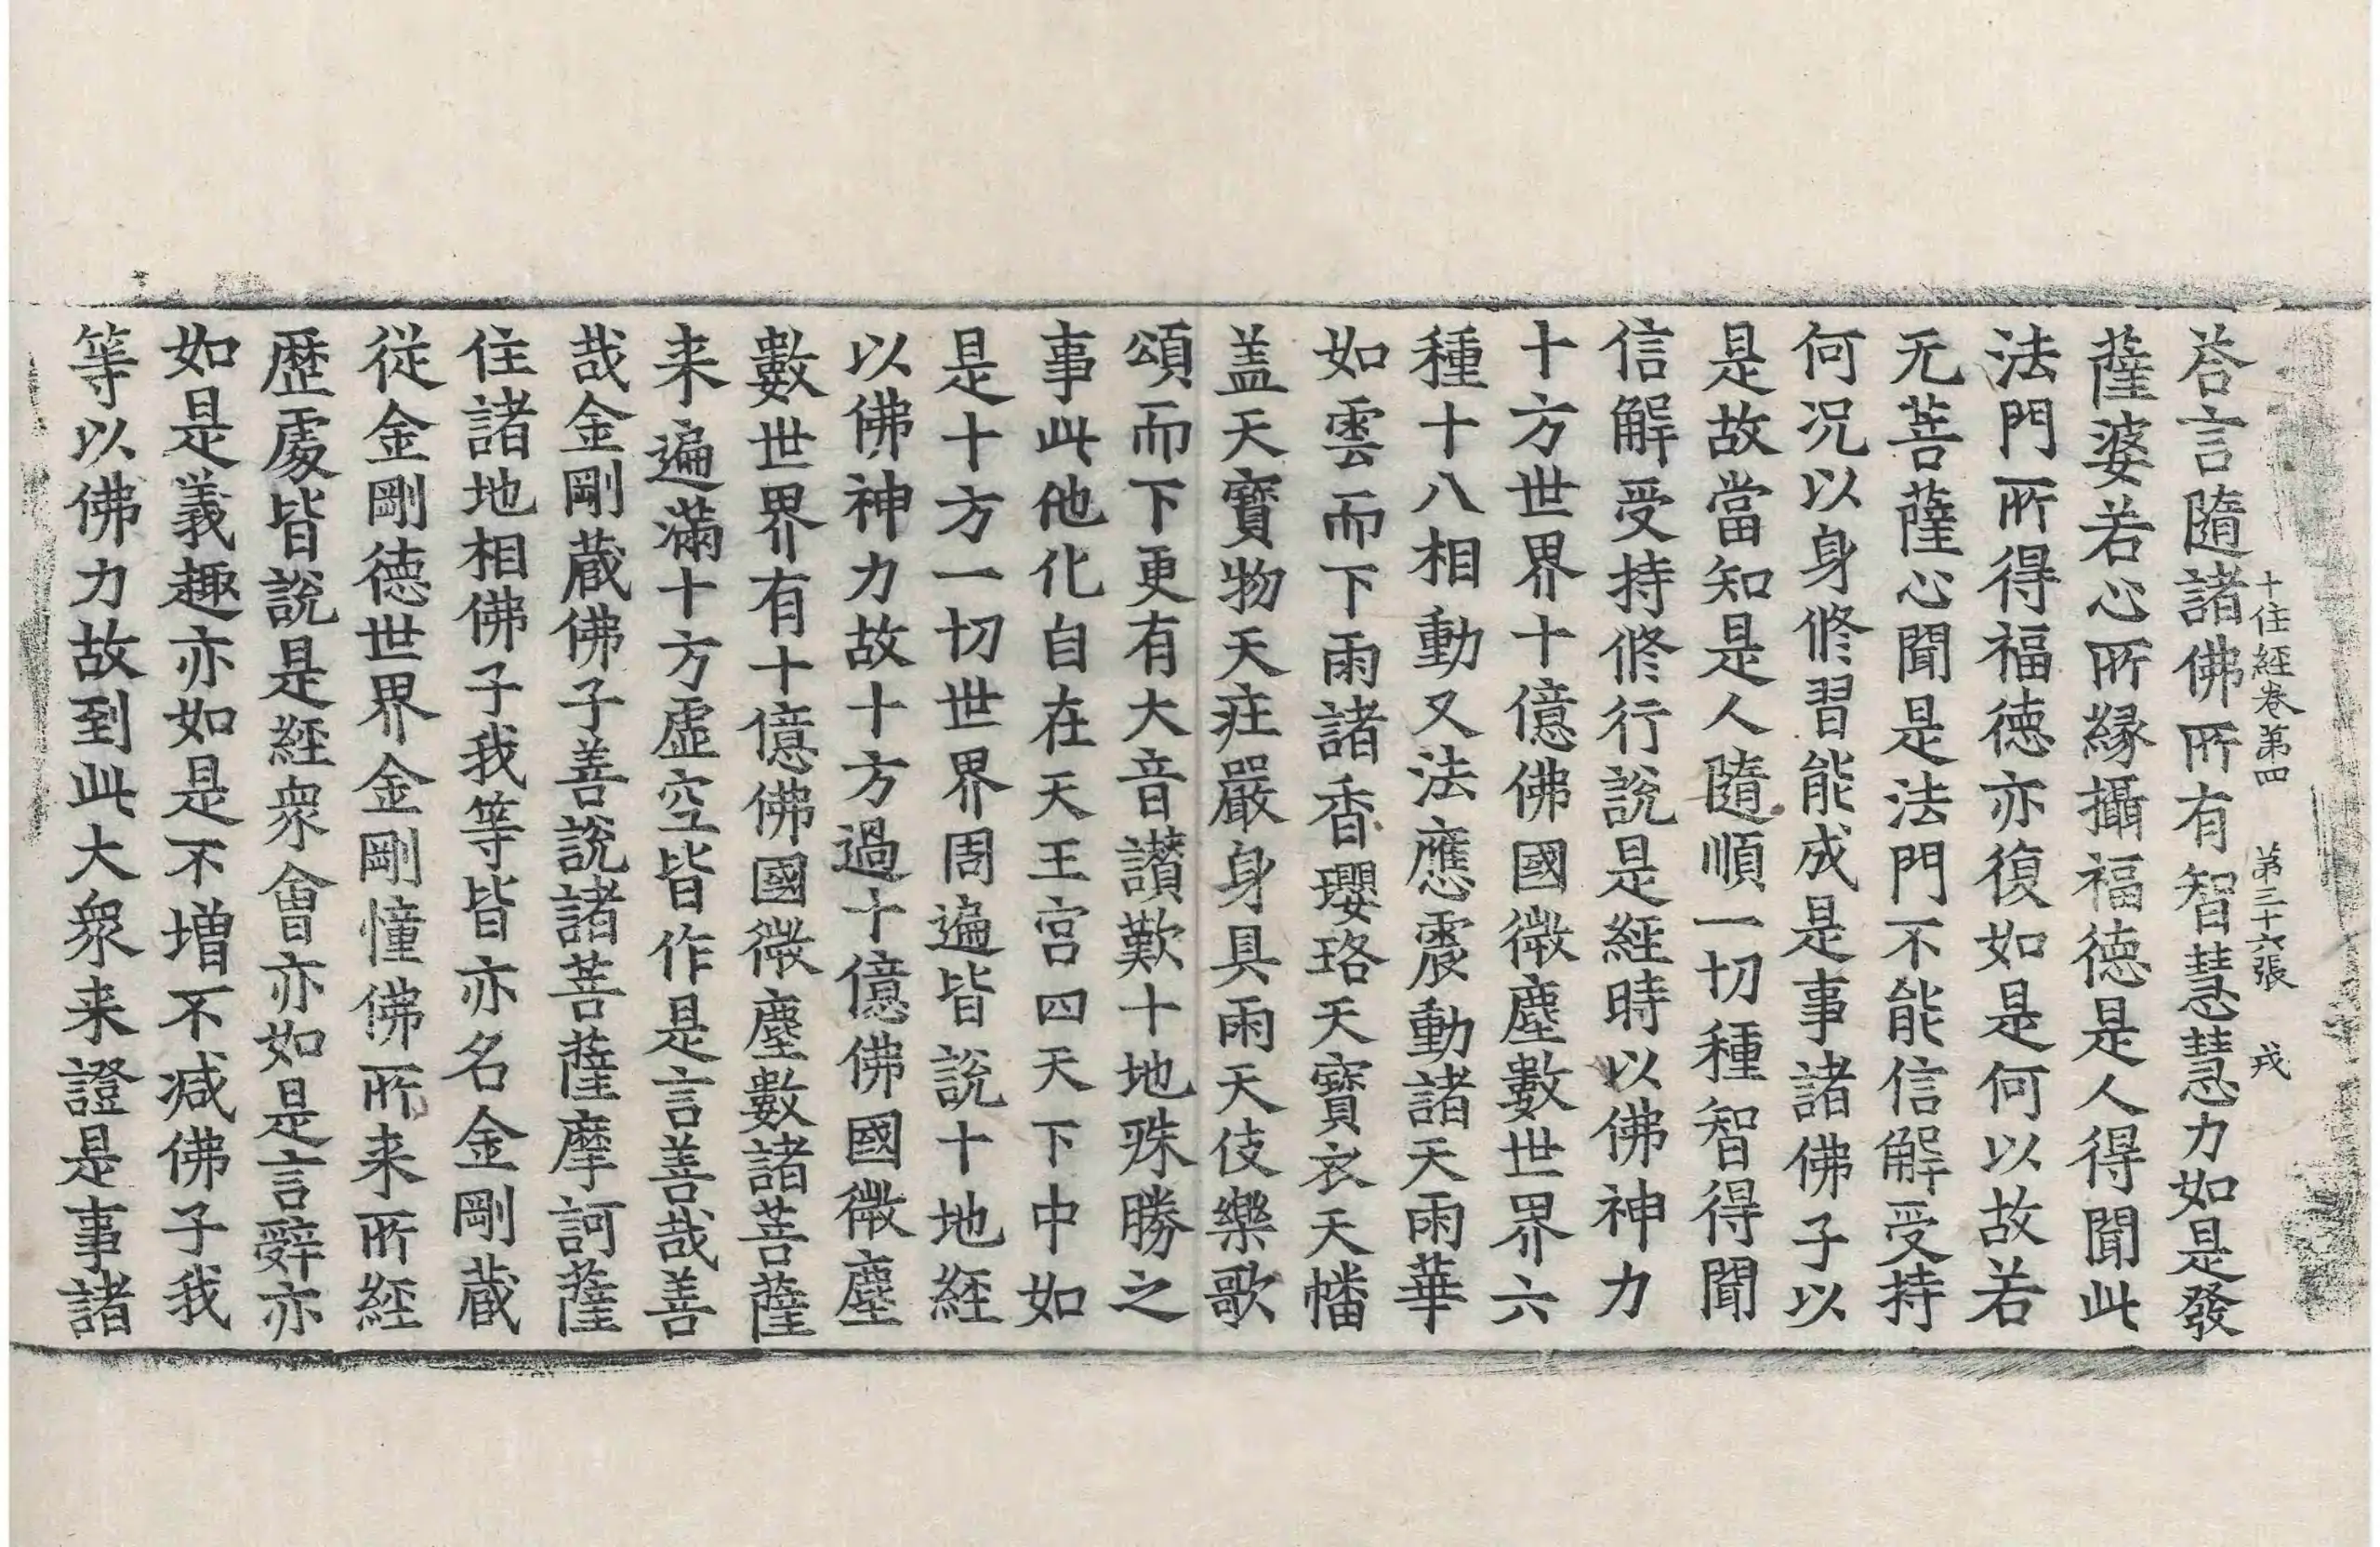 十住經卷第四　第三十六張　戎
荅言隨諸佛所有智慧慧力如是發
薩婆若心所緣攝福德是人得聞此
法門所得福徳亦復如是何以故若
无菩薩心聞是法門不能信解受持
何况以身修習能成是事諸佛子以
是故當知是人隨順一切種智得聞
信解受持修行說是經時以佛神力
十方世界十億佛國微塵數世界六
種十八相動又法應震動諸天雨華
如雲而下雨諸香瓔珞天寶衣天幡
盖天寶物天㽵嚴身具雨天伎樂歌
頌而下更有大音讃歎十地殊勝之
事此他化自在天王宫四天下中如
是十方一切世界周遍皆說十地経
以佛神力故十方過十億佛國微塵
數世界有十億佛國微塵數諸菩薩
来遍滿十方虛空皆作是言善哉善
哉金剛蔵佛子善說諸菩薩摩訶薩
住諸地相佛子我等皆亦名金剛蔵
従金剛徳世界金剛憧佛所来所經
歷處皆說是經衆會亦如是言辭亦
如是義趣亦如是不增不减佛子我
等以佛力故到此大衆来證是事諸